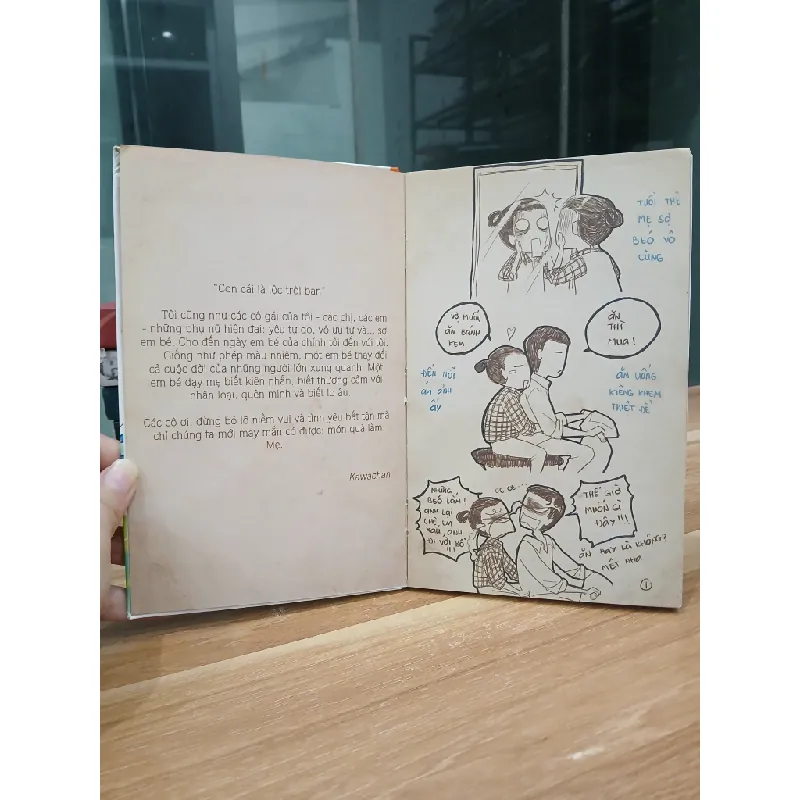 "Con cái là lộc trời ban"
Tôi cũng như các cô gái của tôi - các chị, các em
- những phụ nữ hiện đại: yêu tự do, vô ưu tư và... sợ
em bé. Cho đến ngày em bé của chính tôi đến với tôi.
Giống như phép màu nhiệm, một em bé thay đổi
cả cuộc đời của những người lớn xung quanh. Một
em bé dạy mẹ biết kiên nhẫn, biết thương cảm với
nhân loại, quên mình và biết lo âu.
Các cô ơi, đừng bỏ lỡ niềm vui và tình yêu hết tận mà
chỉ chúng ta mới may mắn có được: món quà làm
Mẹ.
Kawachan
TUỔI TRẺ
MẸ SỢ
BÉO VÔ
CÙNG
VỢ MUỐN
ĂN BÁNH
KEM
ĂN
THÌ
MUA!
ĐẾN NỖI
ẤY
ĂN UỐNG
KIÊNG KHEM
TRIỆT ĐỂ
NHƯNG
BÉO LẮM!
ANH LẠI
CHÊ EM
ANH
ĐI VỚI BỒ
!!!
THẾ GIỜ
MUỐN GÌ
ĐÂY!!!
ĂN HAY LÀ KHÔNG?
MỆT NHA
1